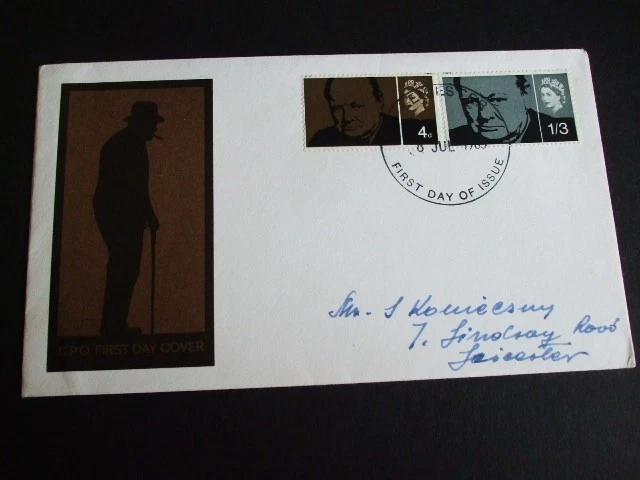 4d
1/3
8 JUL 1965
FIRST DAY OF ISSUE
Mr. S Konieczny
7. Lindsay Road
Leicester
G.P.O. FIRST DAY COVER